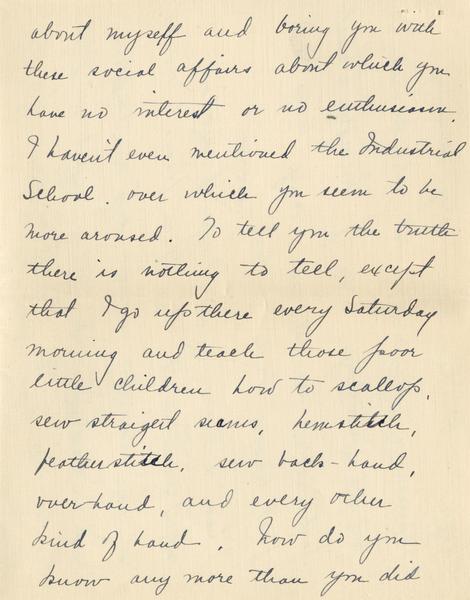 about myself and boring you with
these social affairs about which you
have no interest or no enthuseasm.
I haven't even mentioned the Industrial
School. over which you seem to be
more aroused. To tell you the truth
there is nothing to tell, except
that I go up there every Saturday
morning and teach those poor
little children how to scallop,
sew straigert seams, hemstitch,
featherstitch, sew back-hand,
over-hand, and every other
kind of hand. Now do you
know any more than you did